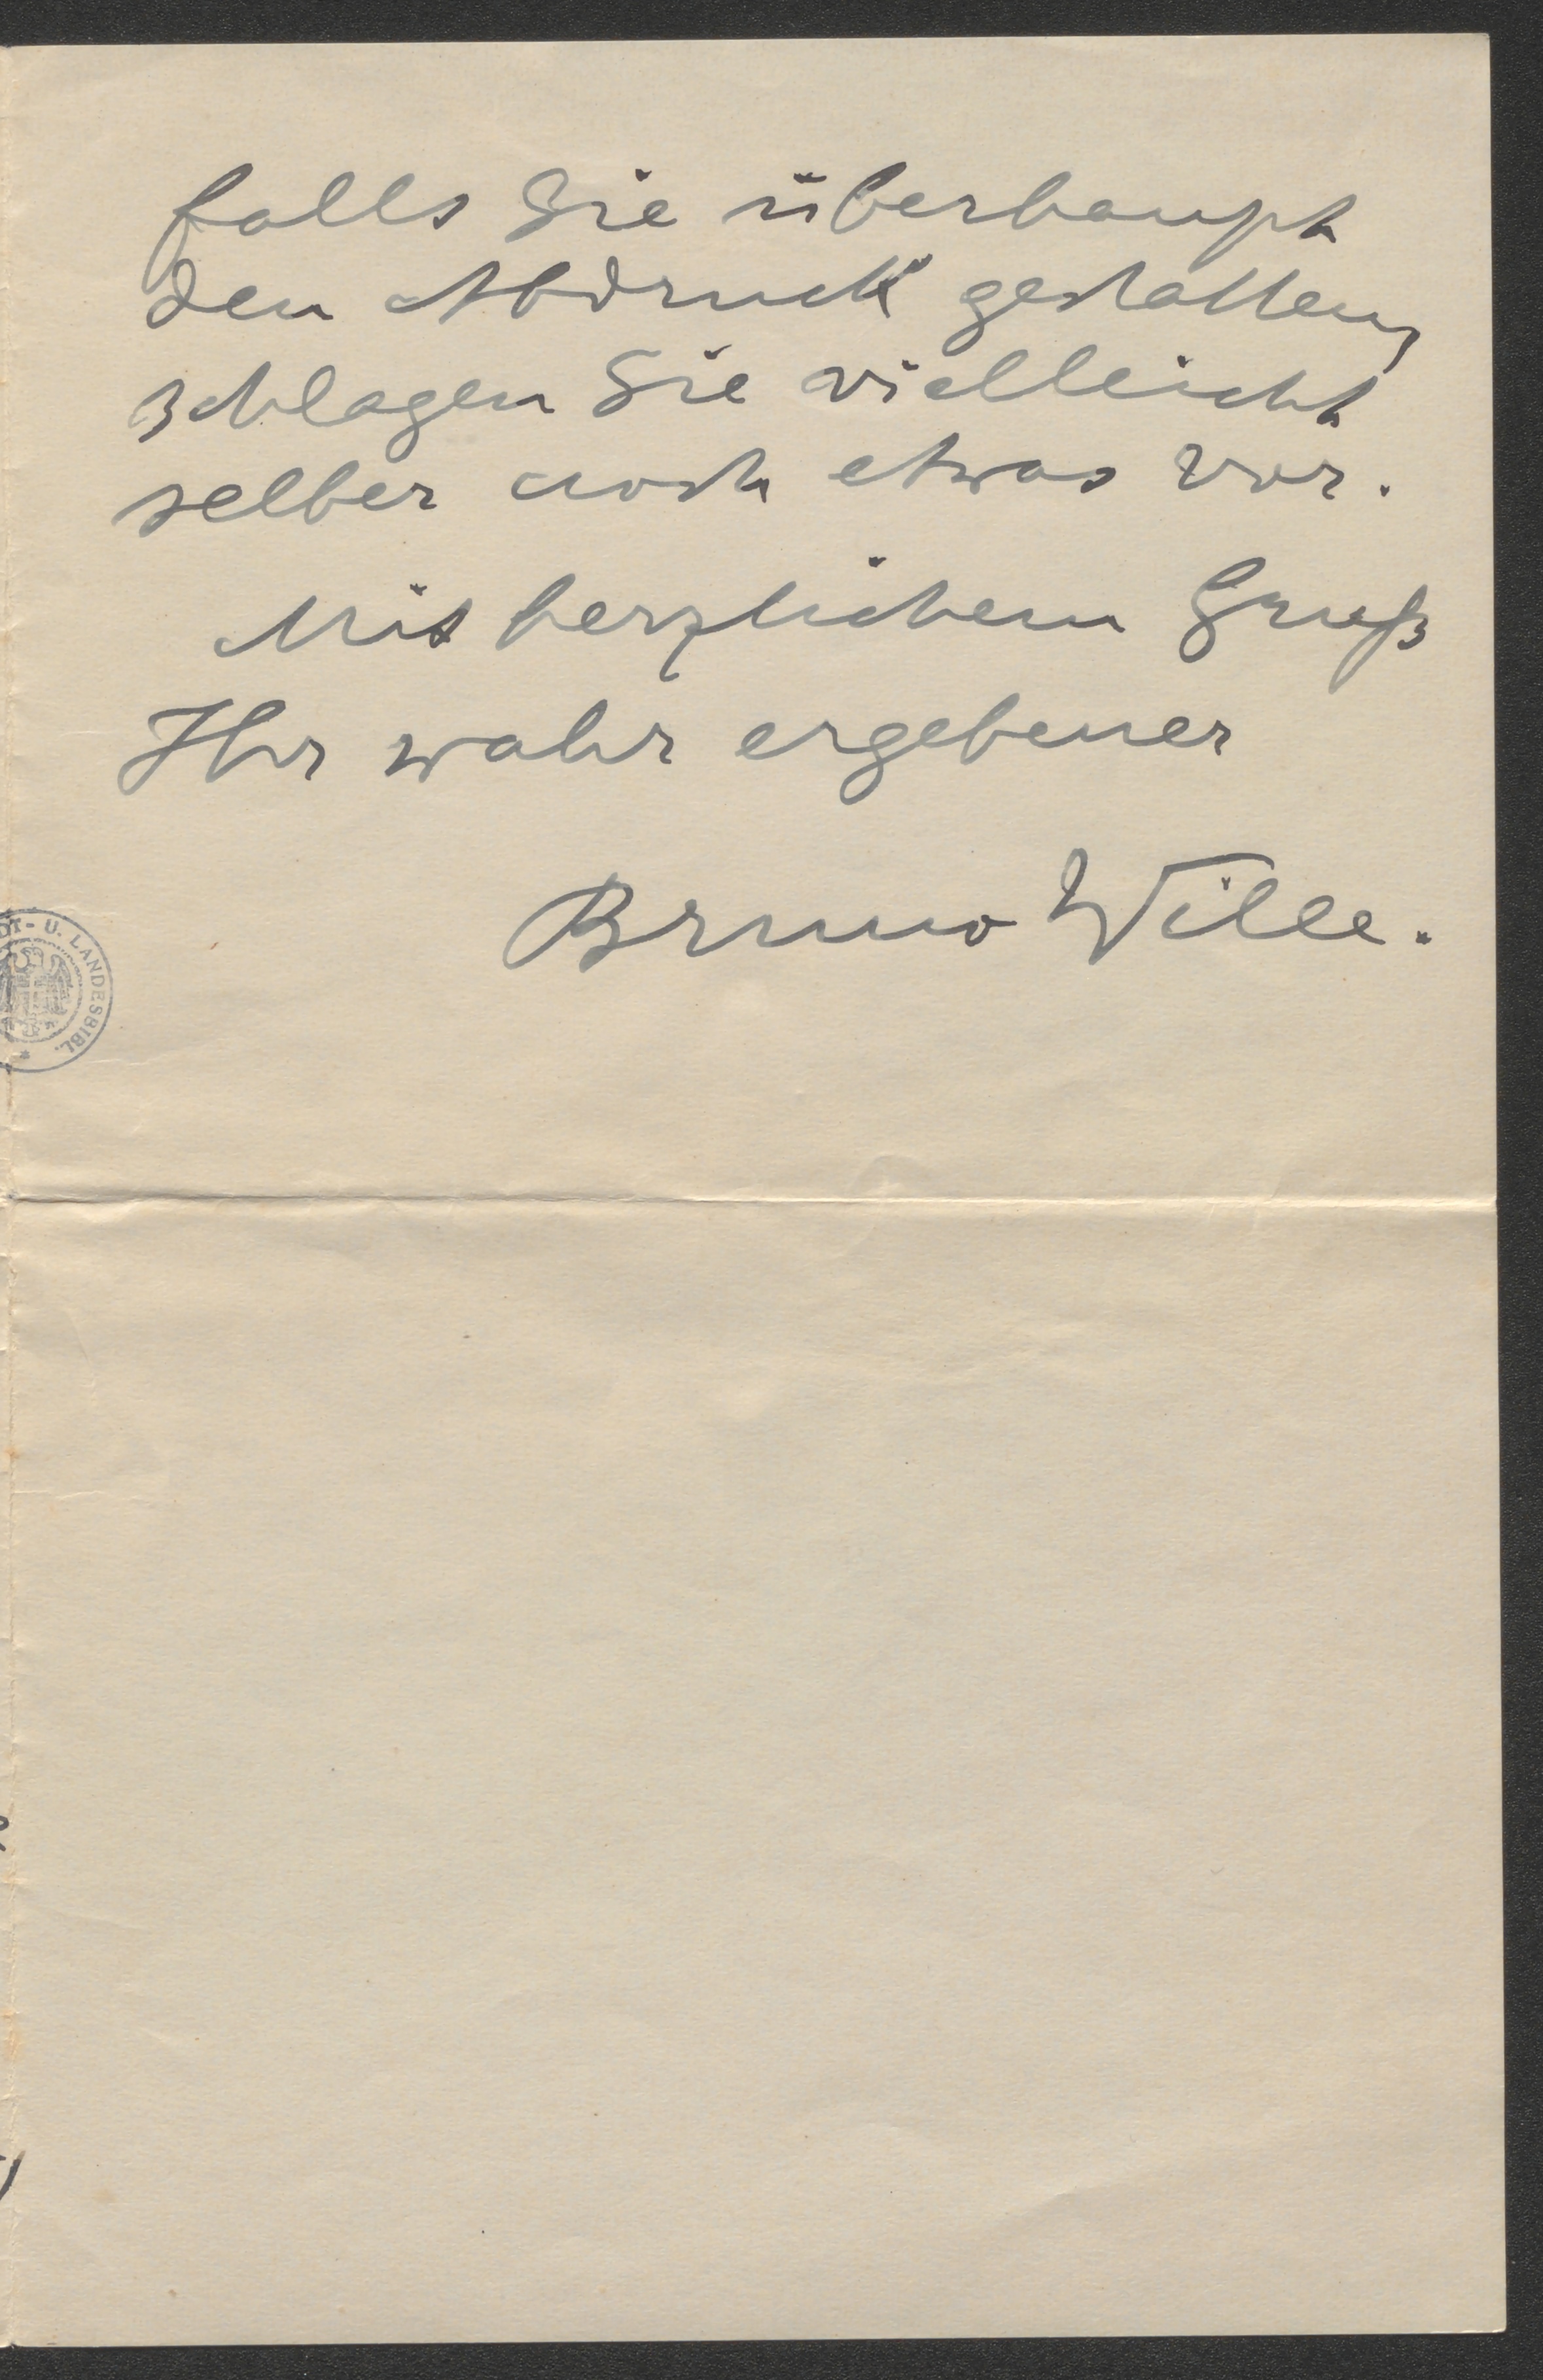 falls Sie überhaupt
den Abdruck gestatten,
schlagen Sie vielleicht
selber noch etwas vor.
Mit herzlichem Gruß
Ihr wahr ergebener
Bruno Wille.
DT- U. LANDESBIBL.